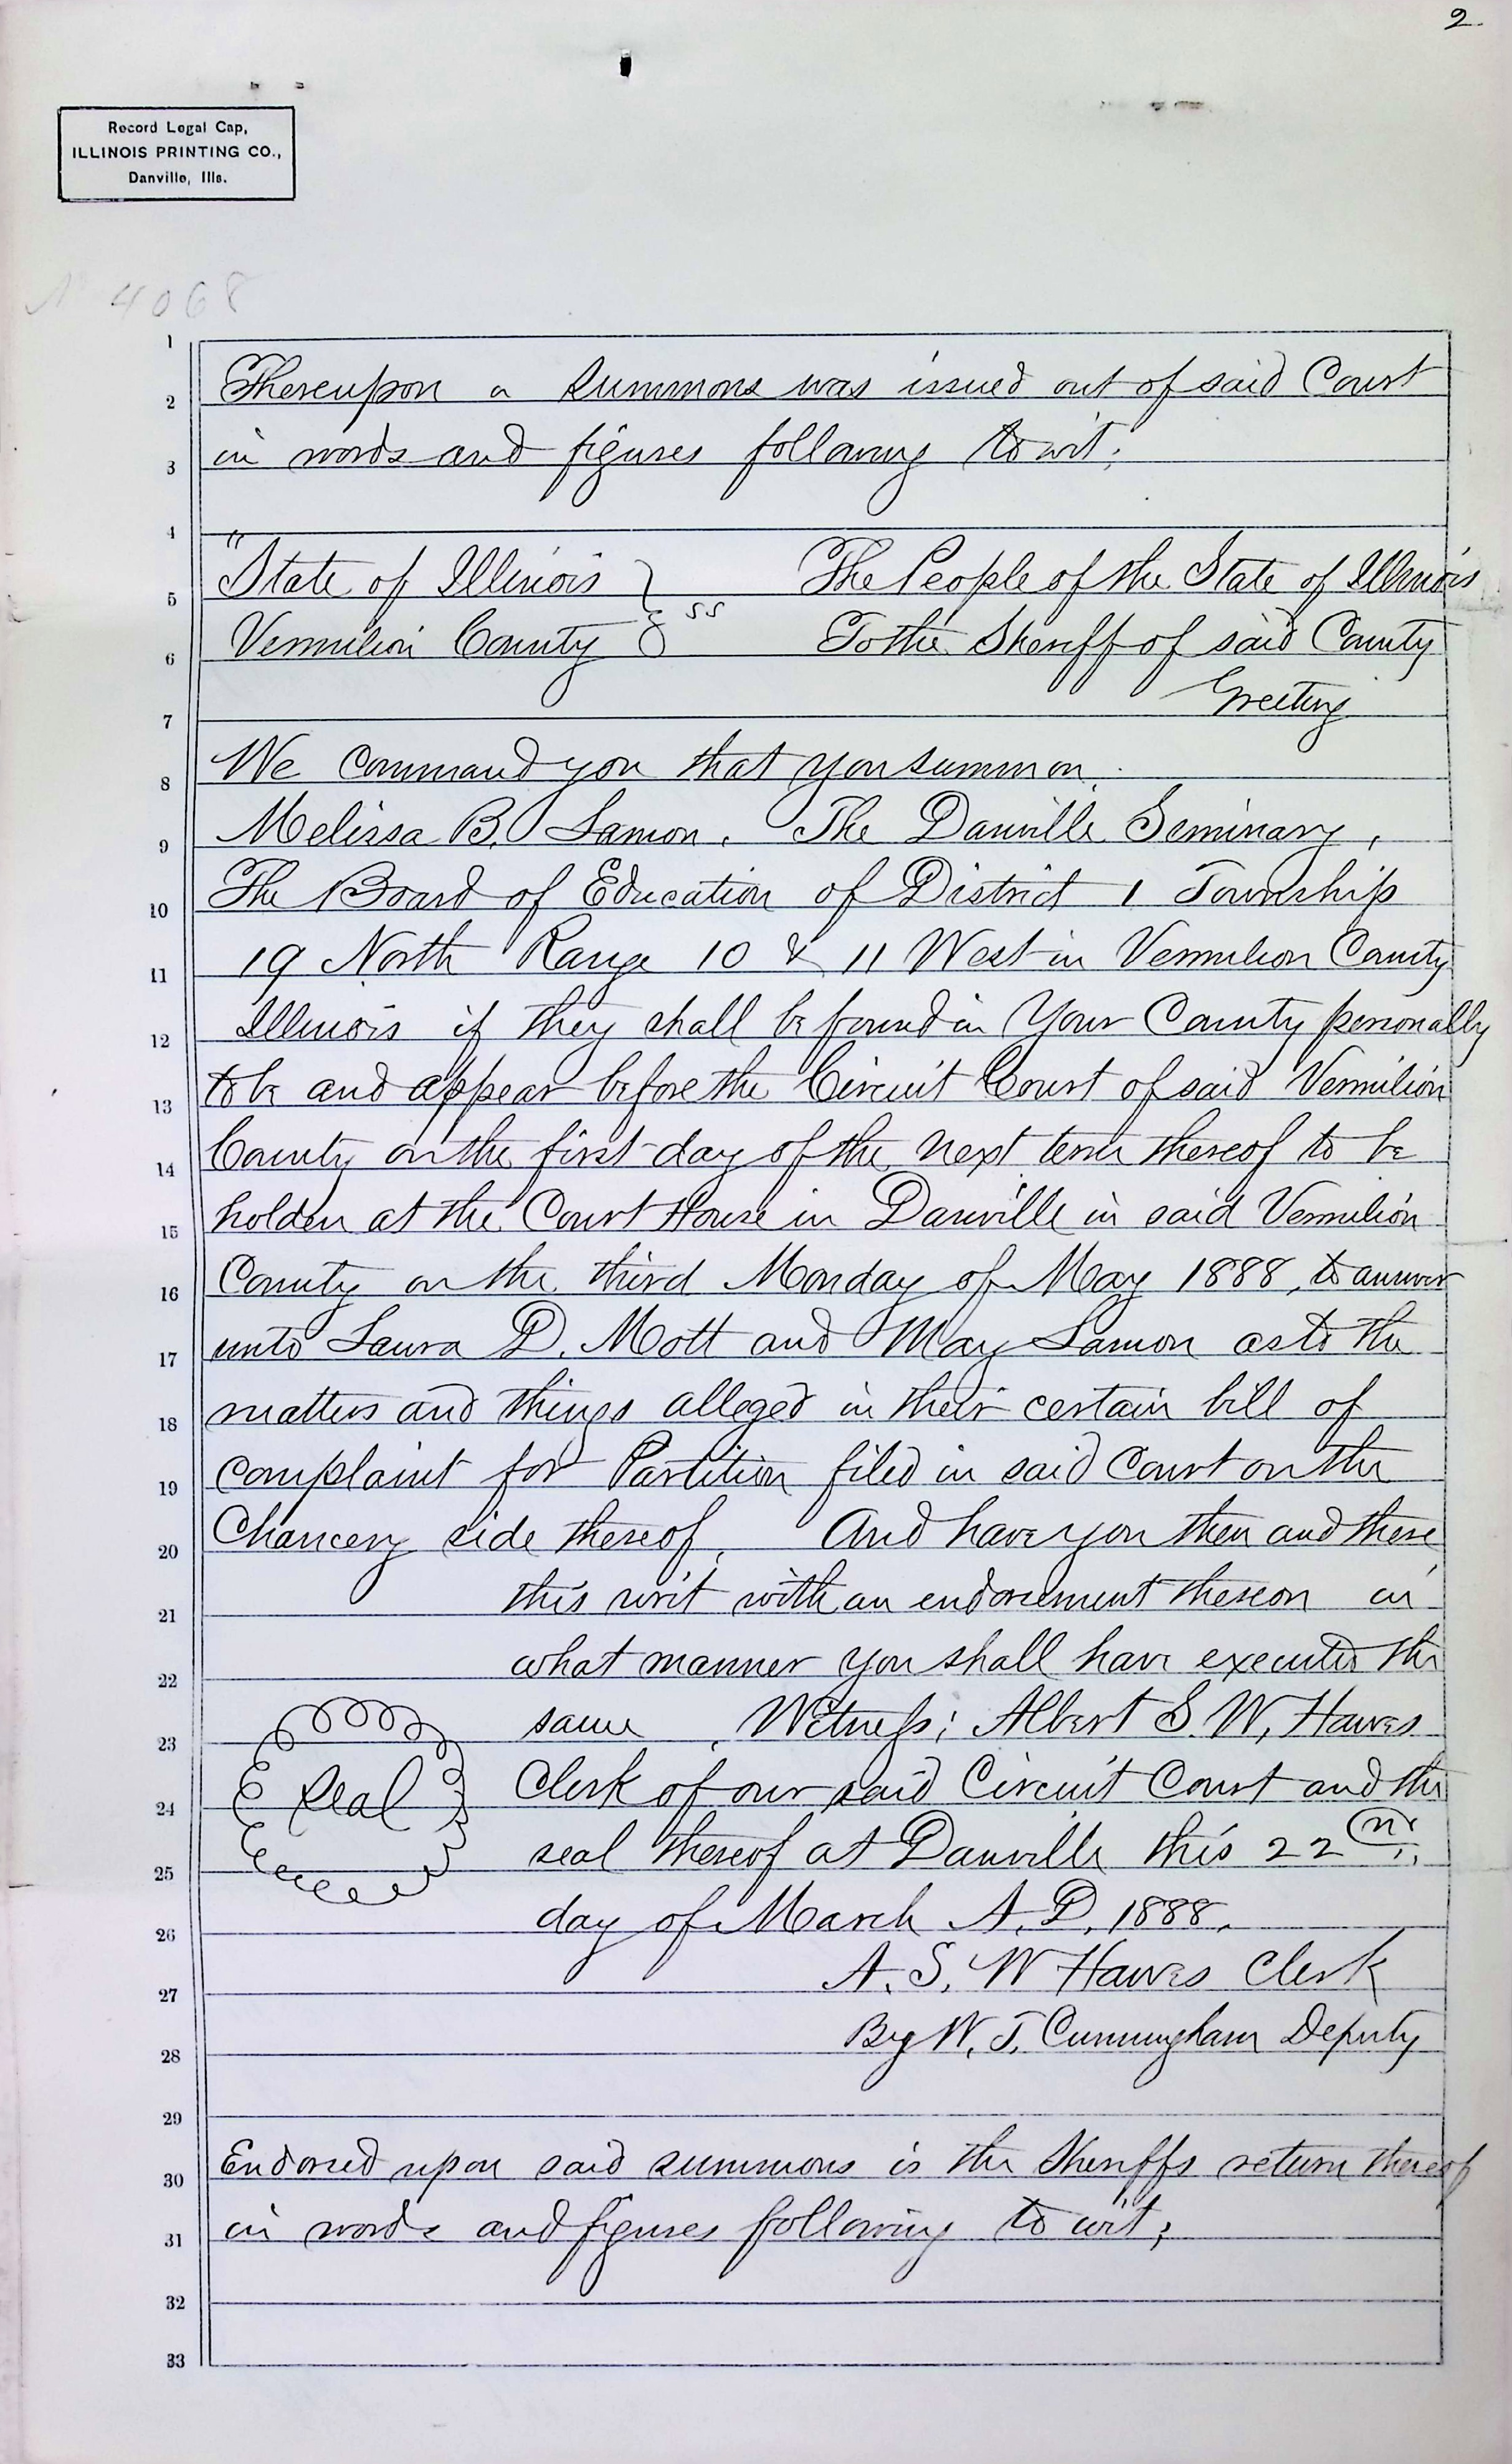 2.
Record Legal Cap,
ILLINOIS PRINTING CO.,
Danville, Ills.
4068
1
2 Thereupon a Summons was issued out of said Court
3 in words and figures following to wit:
4
5 "State of Illinois } ss The People of the State of Illinois
6 Vermilion County } To the Sheriff of said County
7 Greeting
8 We Command you that you summon
9 Melissa B. Lamon, The Danville Seminary,
10 The Board of Education of District 1 Township
11 19 North Range 10 & 11 West in Vermilion County
12 Illinois if they shall be found in Your County personally
13 to be and appear before the Circuit Court of said Vermilion
14 County on the first day of the next term thereof to be
15 holden at the Court House in Danville in said Vermilion
16 County on the third Monday of May 1888, to answer
17 unto Laura D. Mott and May Lamon as to the
18 matters and things alleged in their certain bill of
19 Complaint for Partition filed in said Court on the
20 Chancery side thereof. And have you then and there
21 this writ with an endorsement thereon in
22 what manner you shall have executed the
23 same. Witness; Albert S. W. Hawes
24 Seal Clerk of our said Circuit Court and the
25 seal thereof at Danville this 22nd
26 day of March A. D. 1888.
27 A. S. W Hawes Clerk
28 By W. J. Cunningham Deputy
29
30 Endorsed upon said summons is the Sheriffs return thereof
31 in words and figures following to wit;
32
33